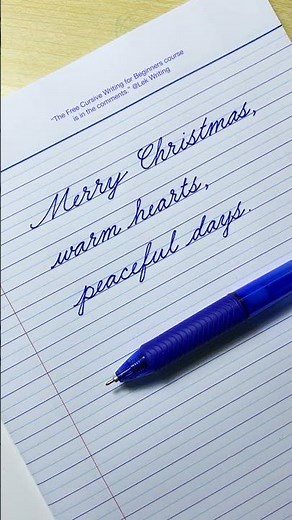 "The Free Cursive Writing for Beginners course
is in the comments." @Lek Writing
Merry Christmas,
warm hearts,
peaceful days.